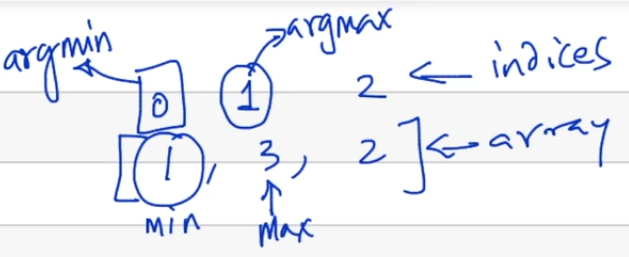 argmin argmax
0 1 2 ← indices
[1, 3, 2] ← array
min max